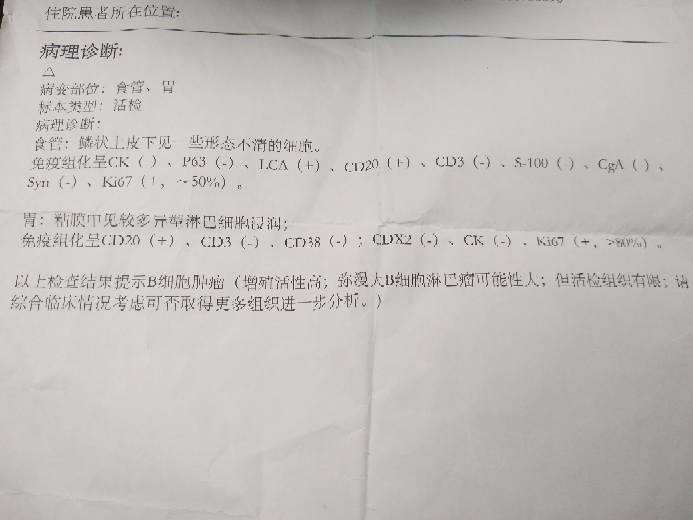 住院患者所在位置:
病理诊断:
△
病变部位: 食管、胃
标本类型: 活检
病理诊断:
食管: 鳞状上皮下见一些形态不清的细胞。
免疫组化呈CK ( )、P63 (-)、LCA (+)、CD20 (+)、CD3 (-)、S-100 ( )、CgA ( )、
Syn (-)、Ki67 (+, ~50%)。
胃: 粘膜中见较多异型淋巴细胞浸润;
免疫组化呈CD20 (+)、CD3 (-)、CD38 (-); CDX2 (-)、CK (-)、Ki67 (+, >80%)。
以上检查结果提示B细胞肿瘤 (增殖活性高; 弥漫大B细胞淋巴瘤可能性大; 但活检组织有限; 请
综合临床情况考虑可否取得更多组织进一步分析。)